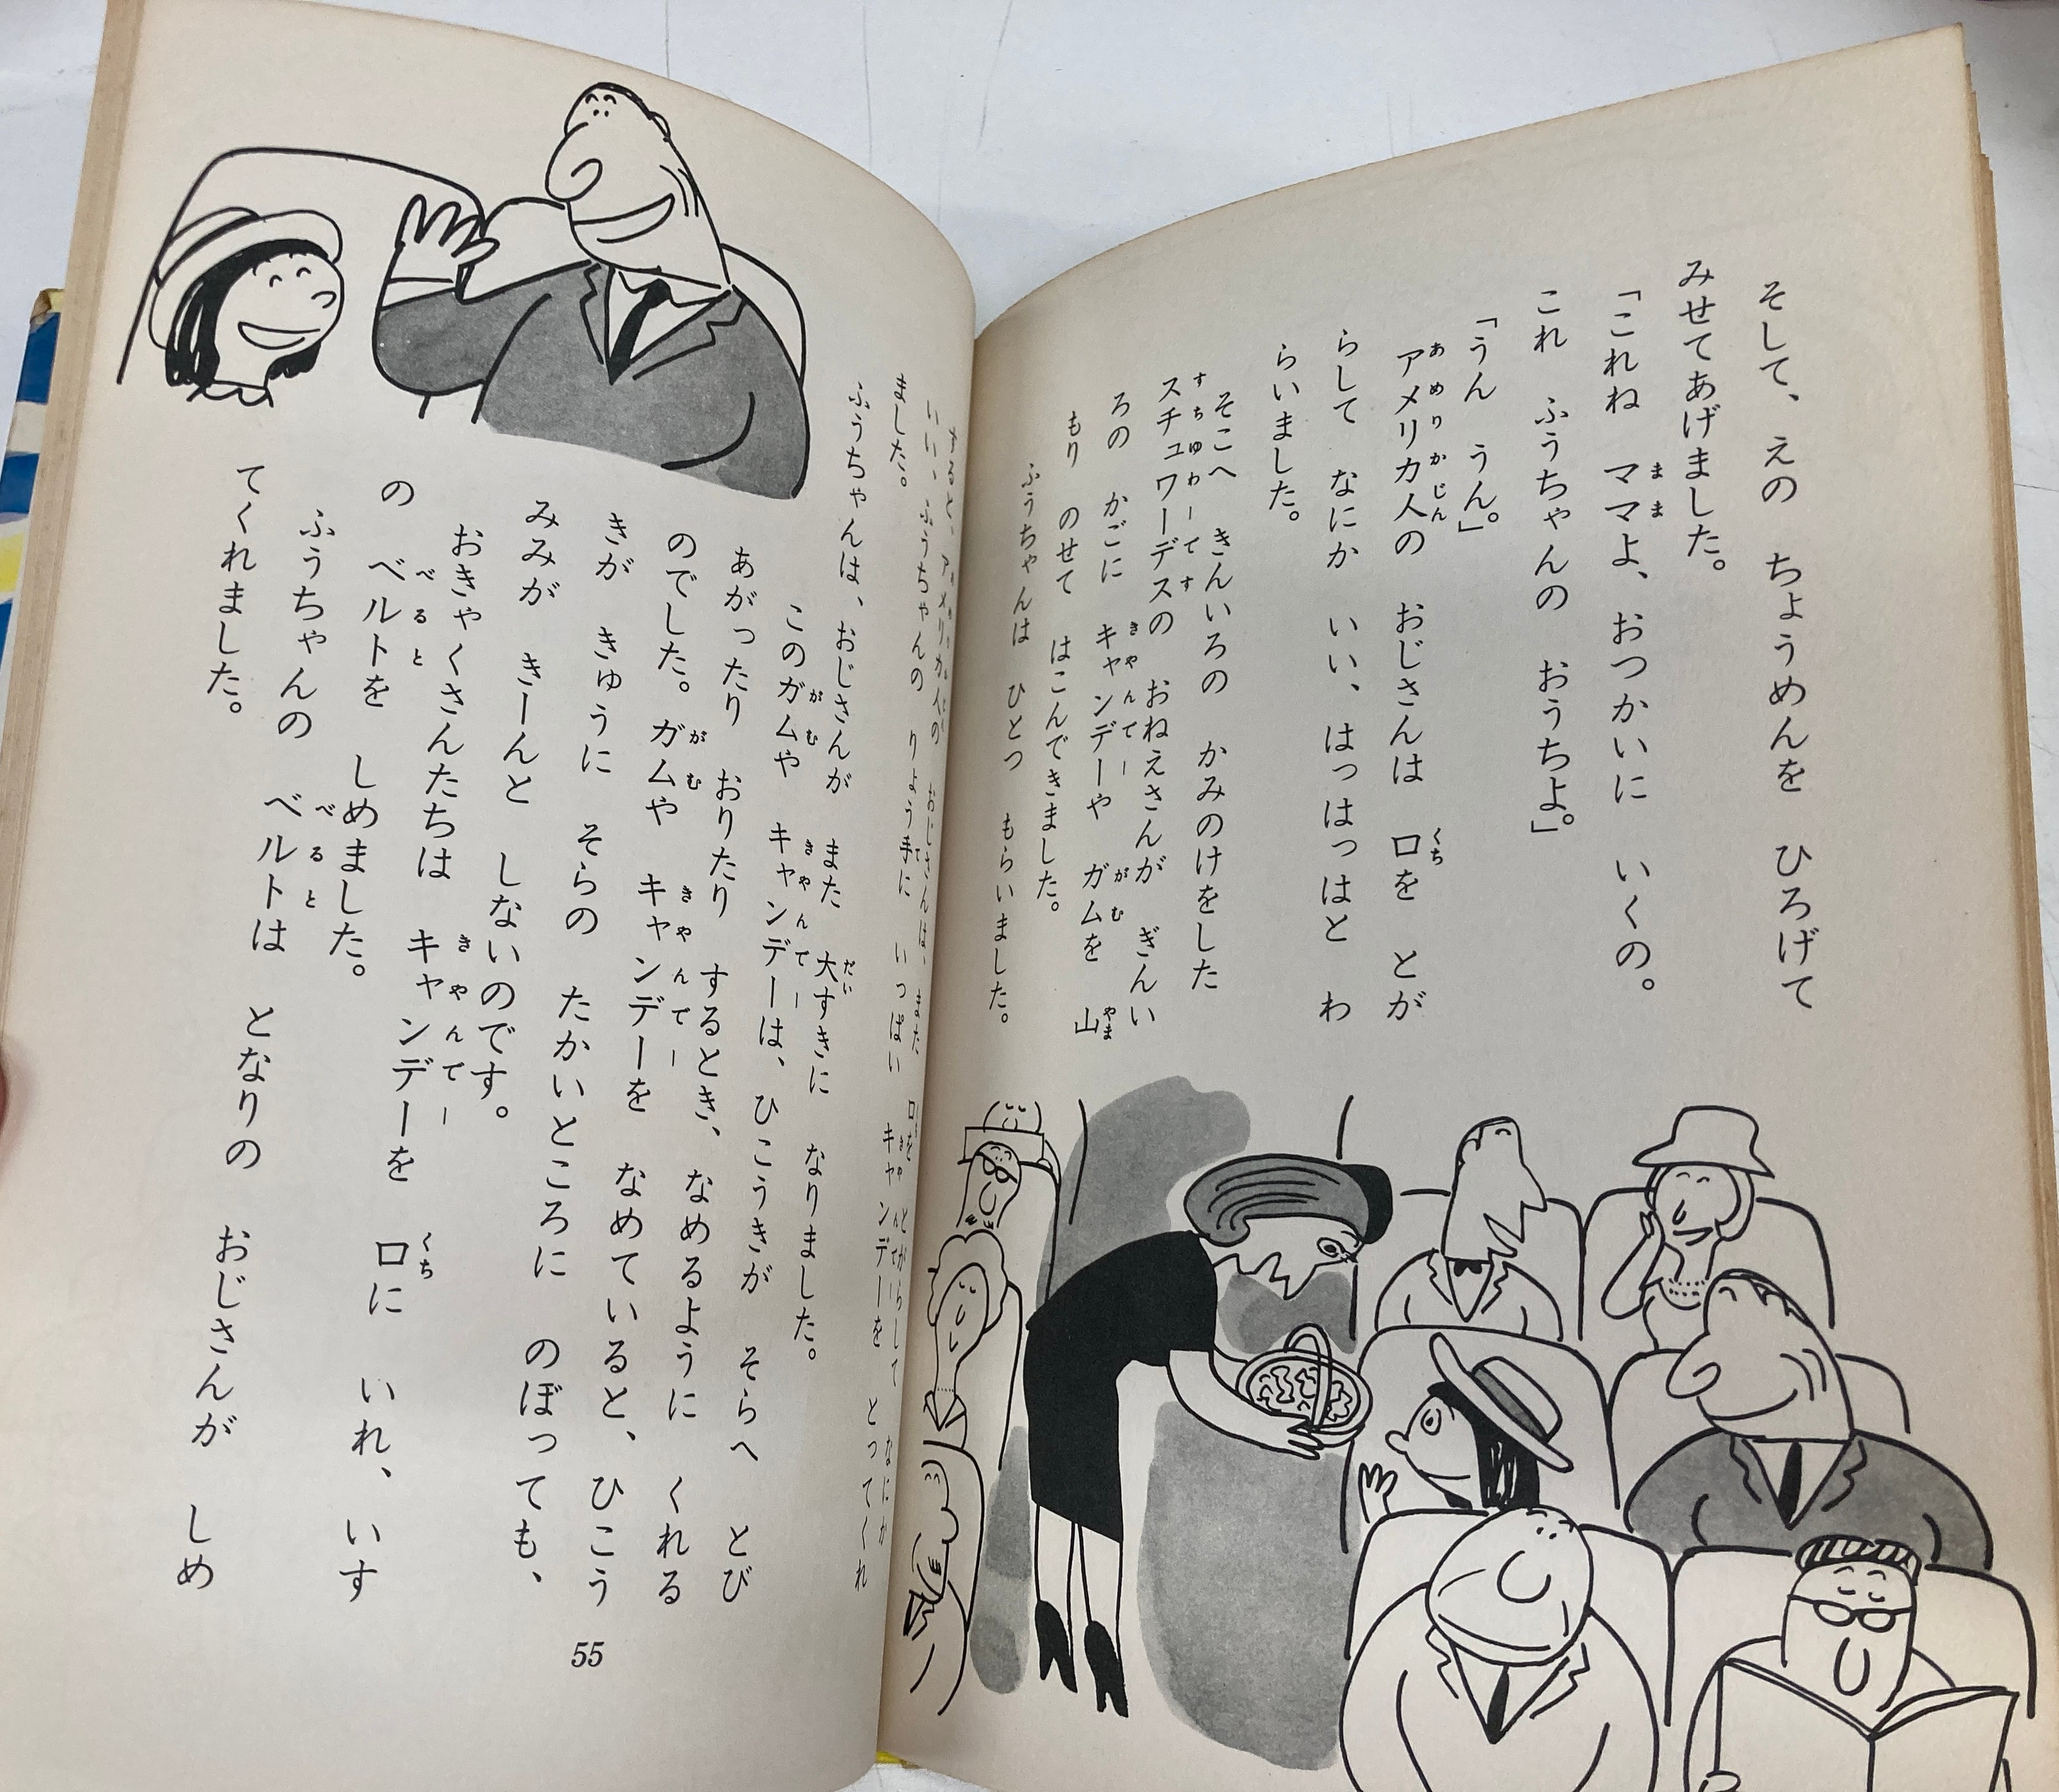 そして、えの ちょうめんを ひろげて
みせてあげました。
「これね ママよ、おつかいに いくの。
これ ふうちゃんの おうちよ。」
「うん うん。」
アメリカ人の おじさんは 口を とが
らして なにか いい、はっはっはと わ
らいました。
そこへ きんいろの かみのけをした
スチュワーデスの おねえさんが ぎんい
ろの かごに キャンデーや ガムを 山
もり のせて はこんできました。
ふうちゃんは ひとつ もらいました。
すると、アメリカ人の おじさんは、また 口を とがらして なにか
いい、ふうちゃんの りょう手に いっぱい キャンデーを とってくれ
ました。
ふうちゃんは、おじさんが また 大すきに なりました。
このガムや キャンデーは、ひこうきが そらへ とび
あがったり おりたり するとき、なめるように くれる
のでした。ガムや キャンデーを なめていると、ひこう
きが きゅうに そらの たかいところに のぼっても、
みみが きーんと しないのです。
おきゃくさんたちは キャンデーを 口に いれ、いす
の ベルトを しめました。
ふうちゃんの ベルトは となりの おじさんが しめ
てくれました。
55